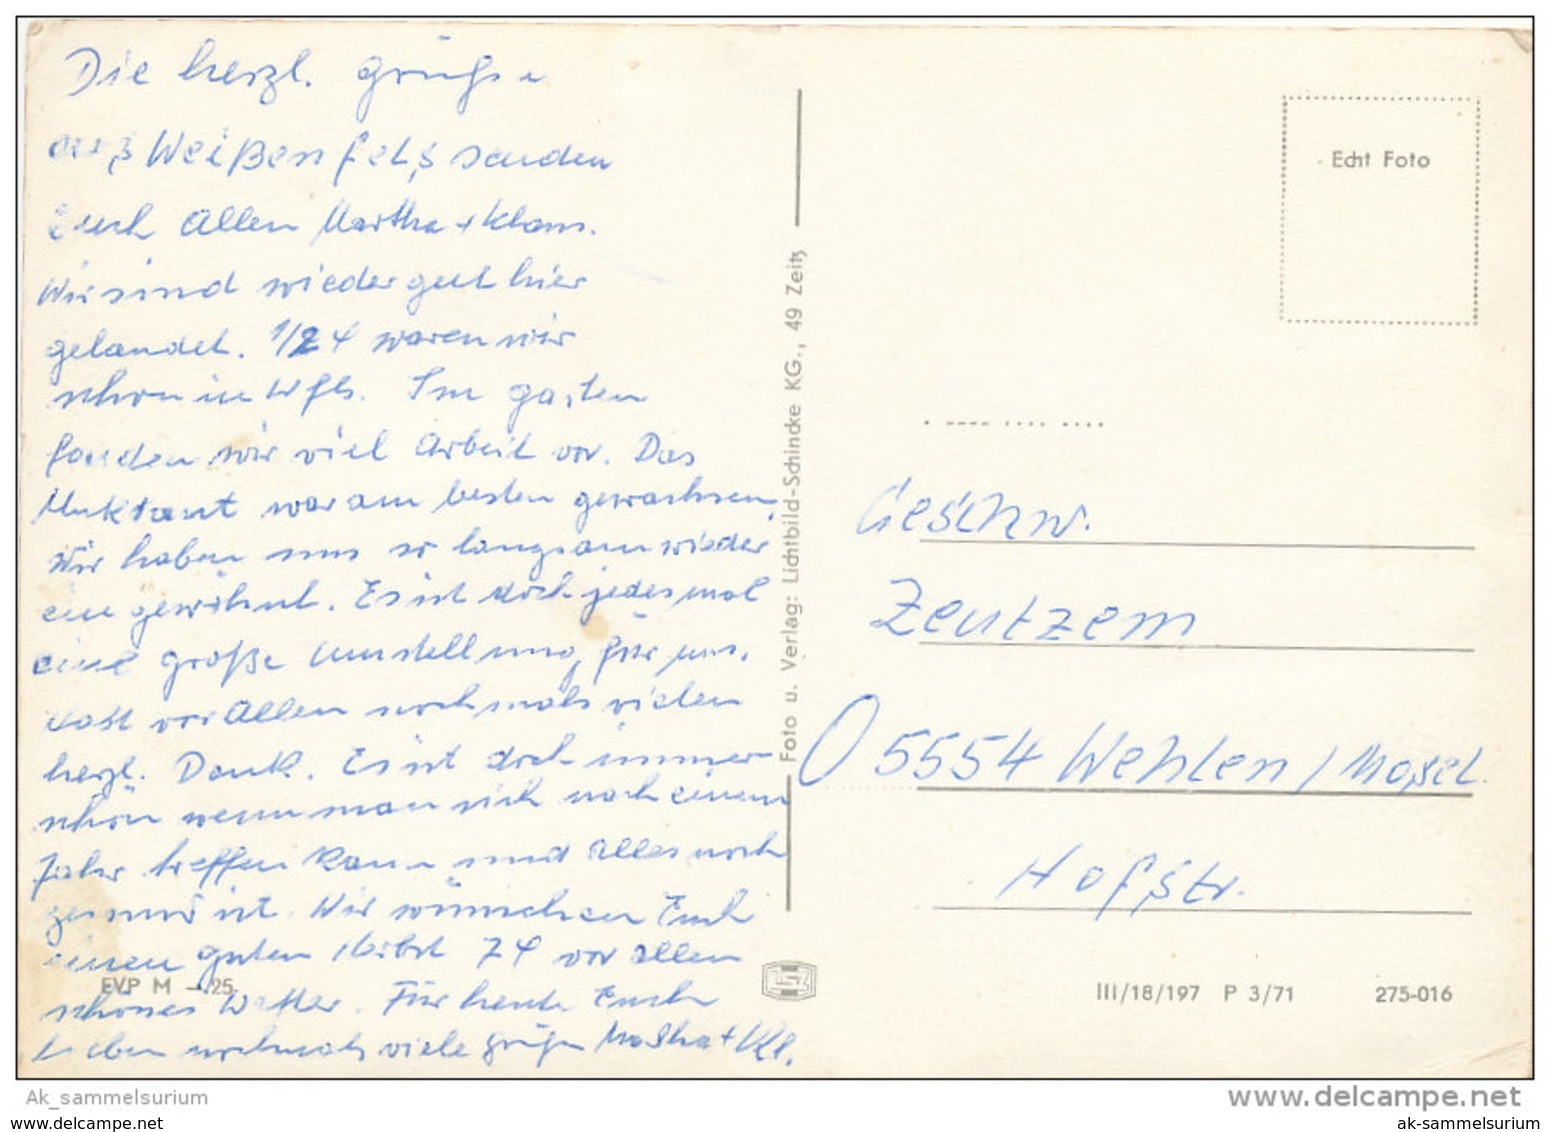 Die herzl. Grüße
aus Weißenfels senden
Euch Allen Martha + Klaus.
Wir sind wieder gut hier
gelandet. 1/2 4 waren wir
schon in Wfls. Im Garten
fanden wir viel Arbeit vor. Das
Unkraut war am besten gewachsen.
Wir haben uns so langsam wieder
ein gewöhnt. Es ist doch jedesmal
eine große Umstellung für uns.
Habt vor Allen nochmals vielen
herzl. Dank. Es ist doch immer
schön wenn man sich nach einem
Jahr treffen kann und alles noch
gesund ist. Wir wünschen Euch
einen guten Herbst 74 vor allen
schönes Wetter. Für heute Euch
Lieben nochmals viele Grüße Martha + Kl.
EVP M -.25
Foto u. Verlag: Lichtbild-Schincke KG., 49 Zeitz
Echt Foto
Geschw.
Zentzem
5554 Wehlen / Mosel
Hofstr.
III/18/197 P 3/71 275-016
Ak_sammelsurium
www.delcampe.net
www.delcampe.net
ak-sammelsurium